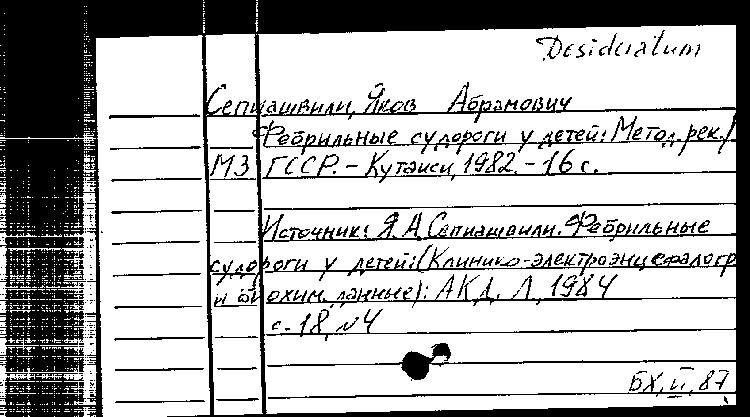 Desideratum
Сепиашвили, Яков Абрамович
Фебрильные судороги у детей: Метод. рек./
МЗ ГССР. - Кутаиси, 1982. - 16 с.
Источник: Я.А. Сепиашвили. Фебрильные
судороги у детей: (Клинико-электроэнцефалогр
и биохим. данные): АКД. Л, 1984
с. 18, №4
БХ, VI, 87